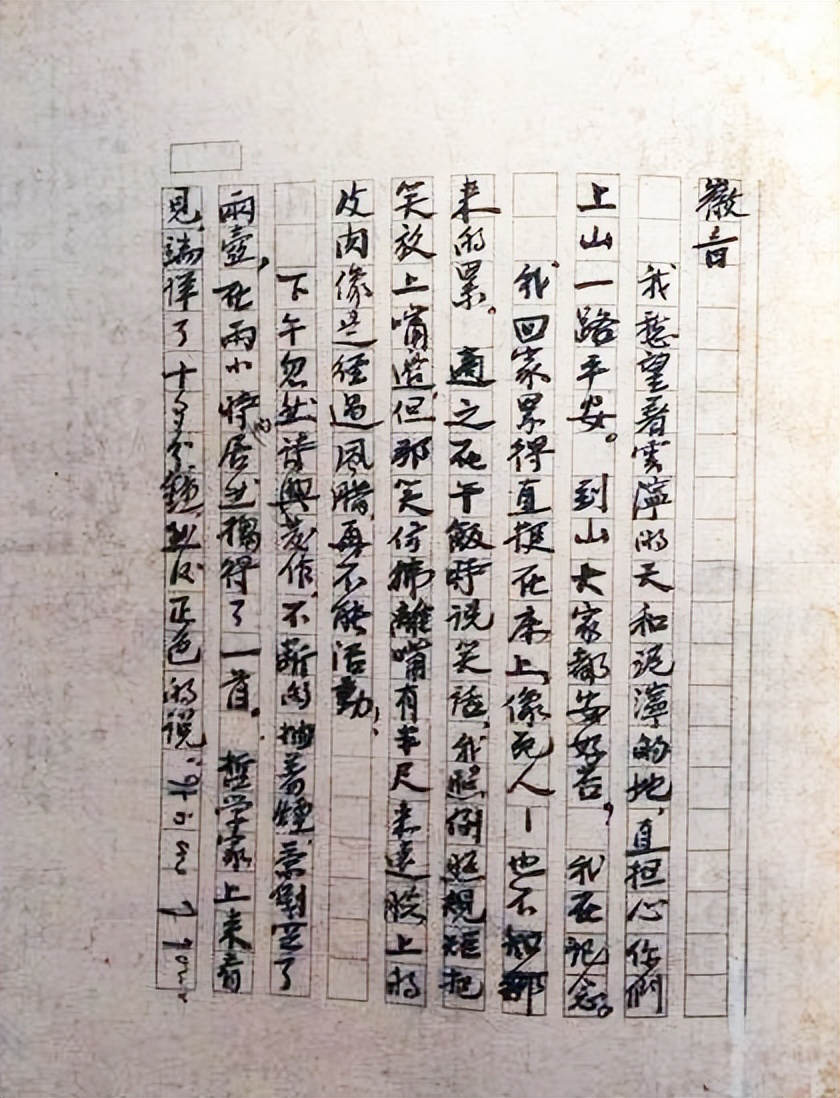 徽音
我愁望着雲濘的天和泥濘的地,直担心你們
上山一路平安。到山大家都安好否?我在記念。
我回家累得直挺在床上,像死人—也不知那
来的累。適之在午飯時说笑话,我照例照規矩把
笑放上嘴邊,但那笑仿彿離嘴有半尺来遠,臉上的
皮肉像是经過風腊,再不能活動!
下午忽然诗興發作,不断的抽着煙,茶倒空了
兩壺,在兩小時内,居然搊得了一首。哲學家上来看
見,端详了十多分鐘,然後正色的说:"